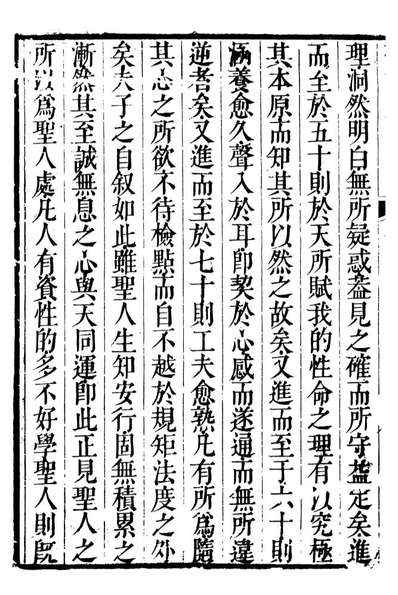 理洞然明白無所疑惑葢見之確而所守益定矣進
而至於五十則於天所賦我的性命之理有以究極
其本原而知其所以然之故矣又進而至于六十則
涵養愈久聲入於耳卽契於心感而遂通而無所違
逆者矣又進而至於七十則工夫愈熟凡有所爲隨
其心之所欲不待檢點而自不越於規矩法度之外
矣夫子之自叙如此雖聖人生知安行固無積累之
漸然其至誠無息之心與天同運卽此正見聖人之
所以爲聖人處凡人有資性的多不好學聖人則旣